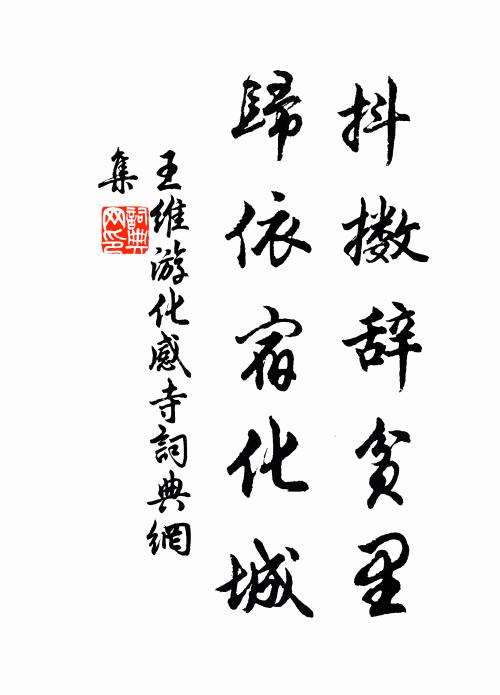 抖擞辞貧里
歸依宿化城
王維游化感寺詞典網
集
詞典
网印